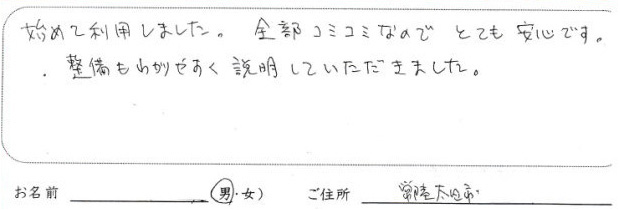 始めて利用しました。全部コミコミなのでとても安心です。
・整備もわかりやすく説明していただきました。
お名前 (男・女) ご住所 常陸太田市